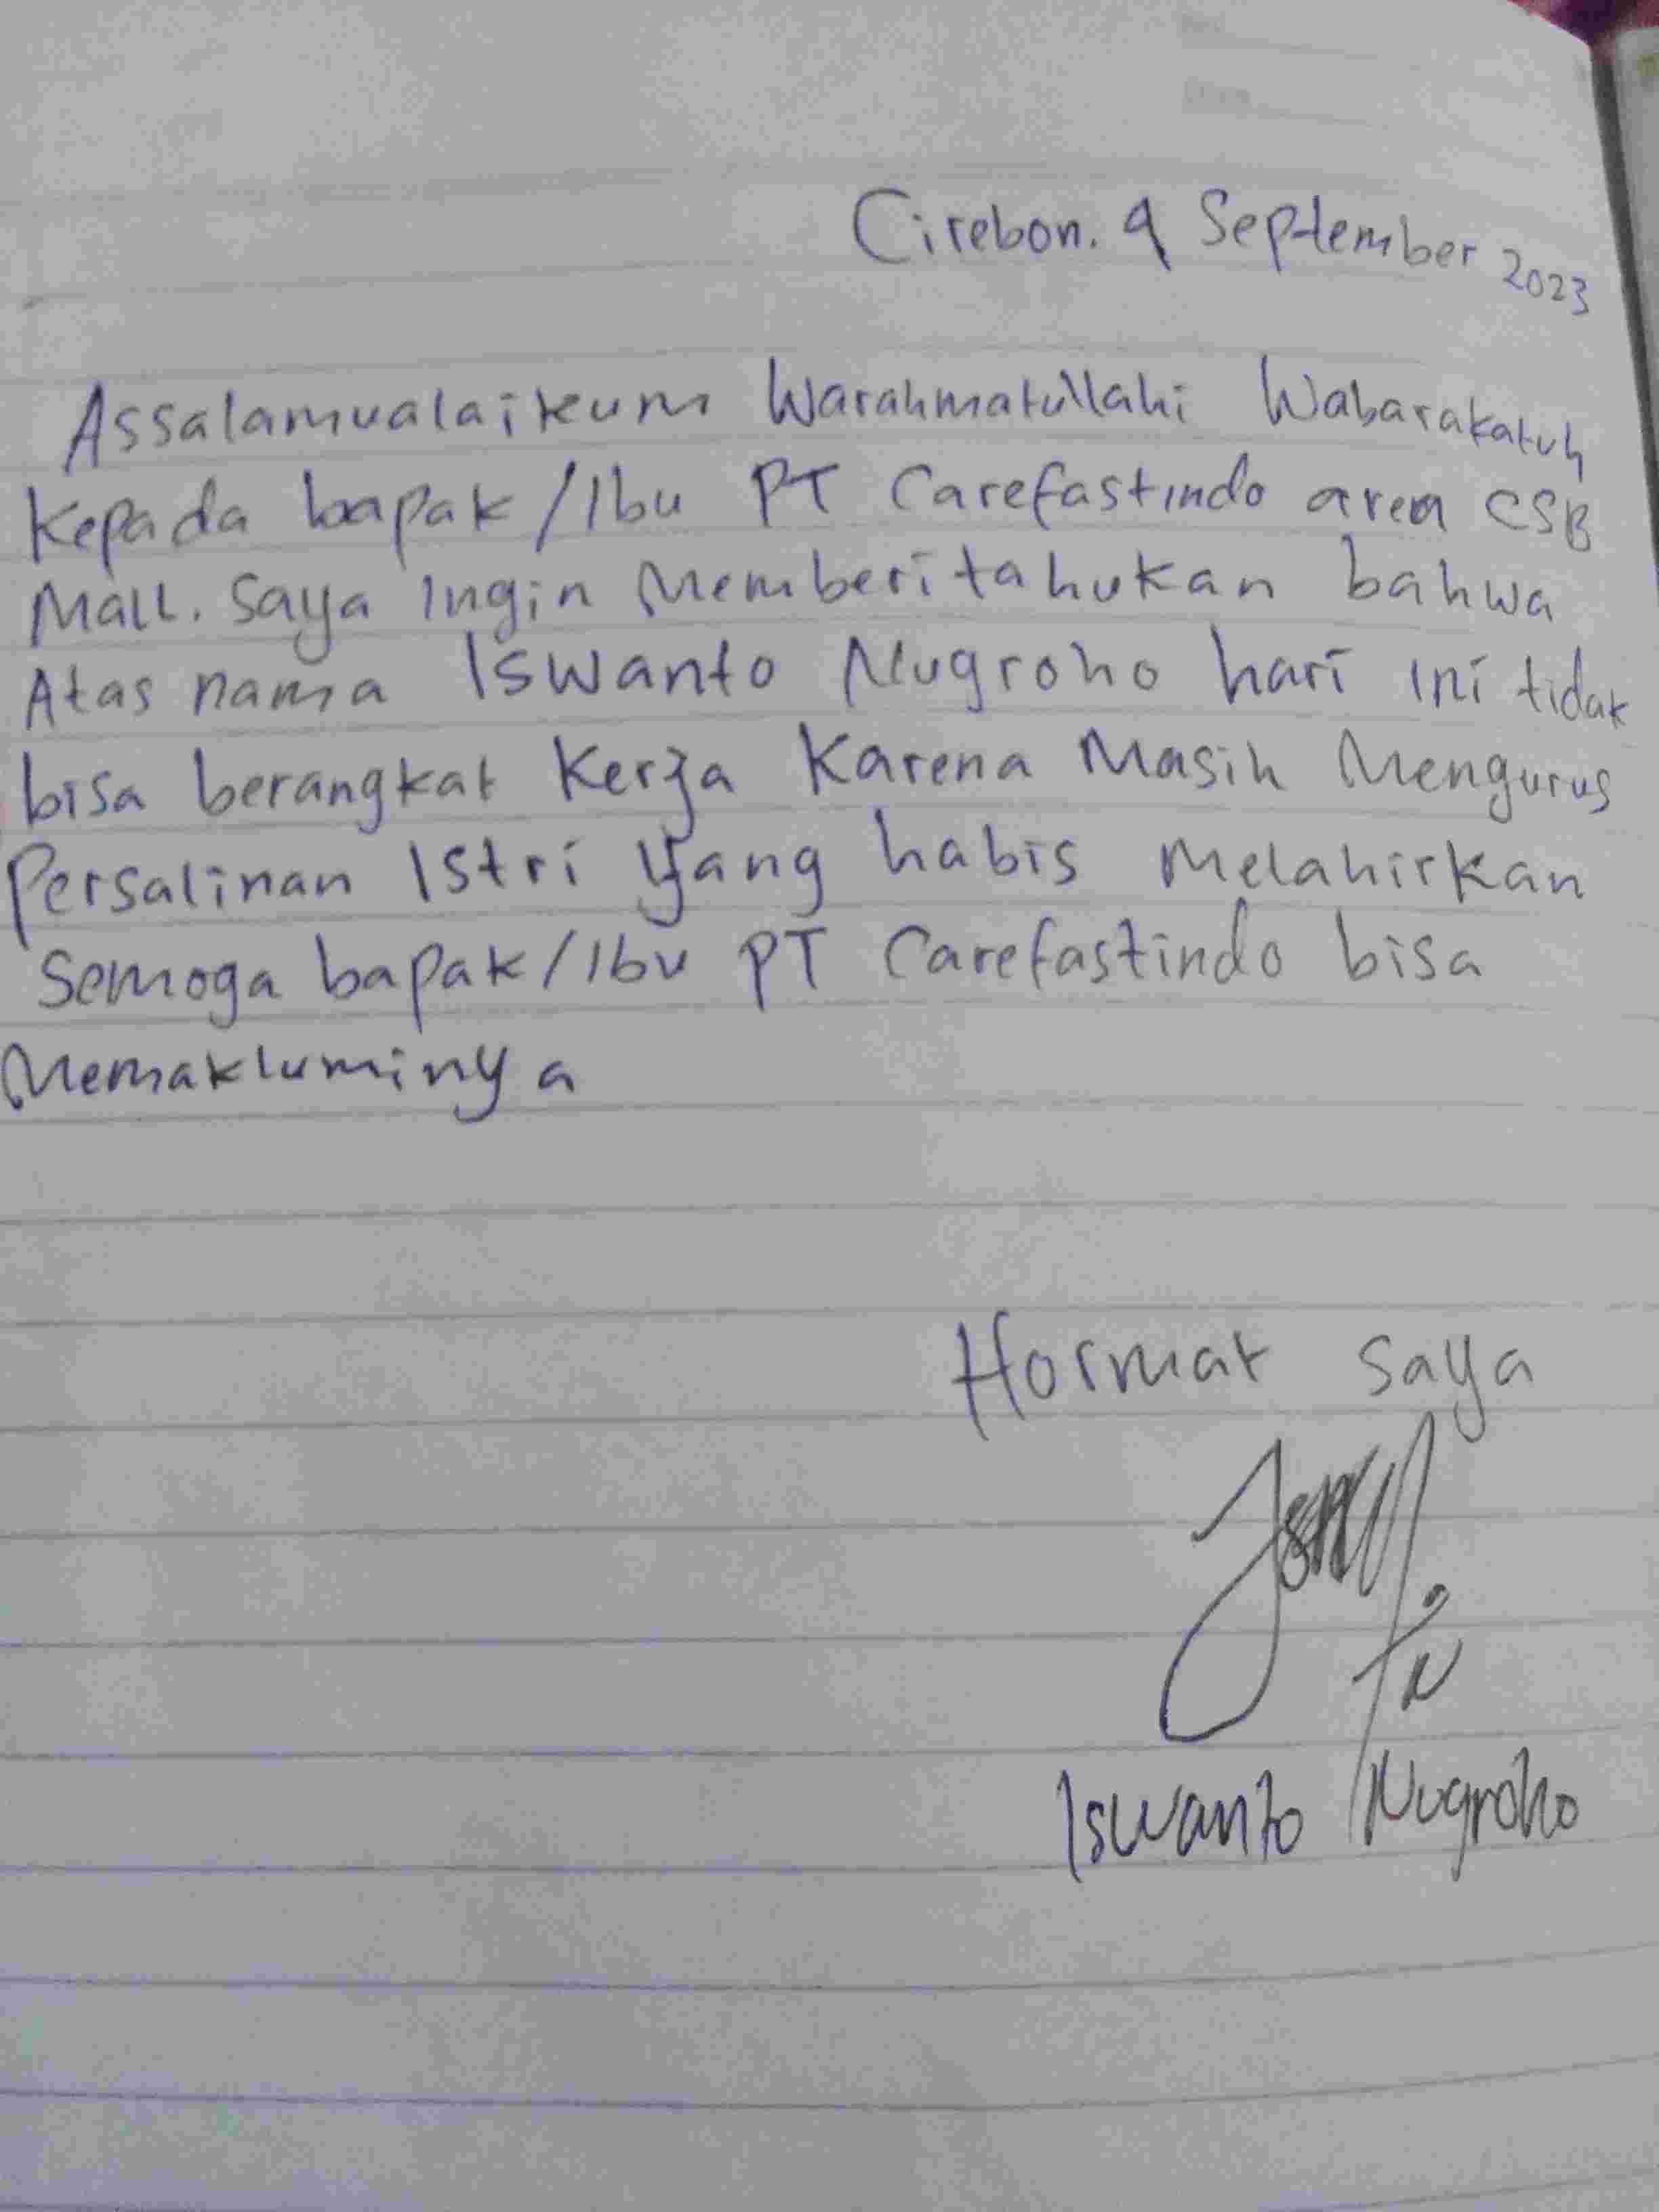 Cirebon. 9 September 2023
Assalamualaikum Warahmatullahi Wabarakatuh
Kepada bapak/Ibu PT Carefastindo area CSB
Mall. Saya Ingin Memberitahukan bahwa
Atas nama Iswanto Nugroho hari ini tidak
bisa berangkat Kerja Karena Masih Mengurus
Persalinan Istri Yang habis Melahirkan
Semoga bapak/Ibu PT Carefastindo bisa
Memakluminya
Hormat saya
Iswanto Nugroho